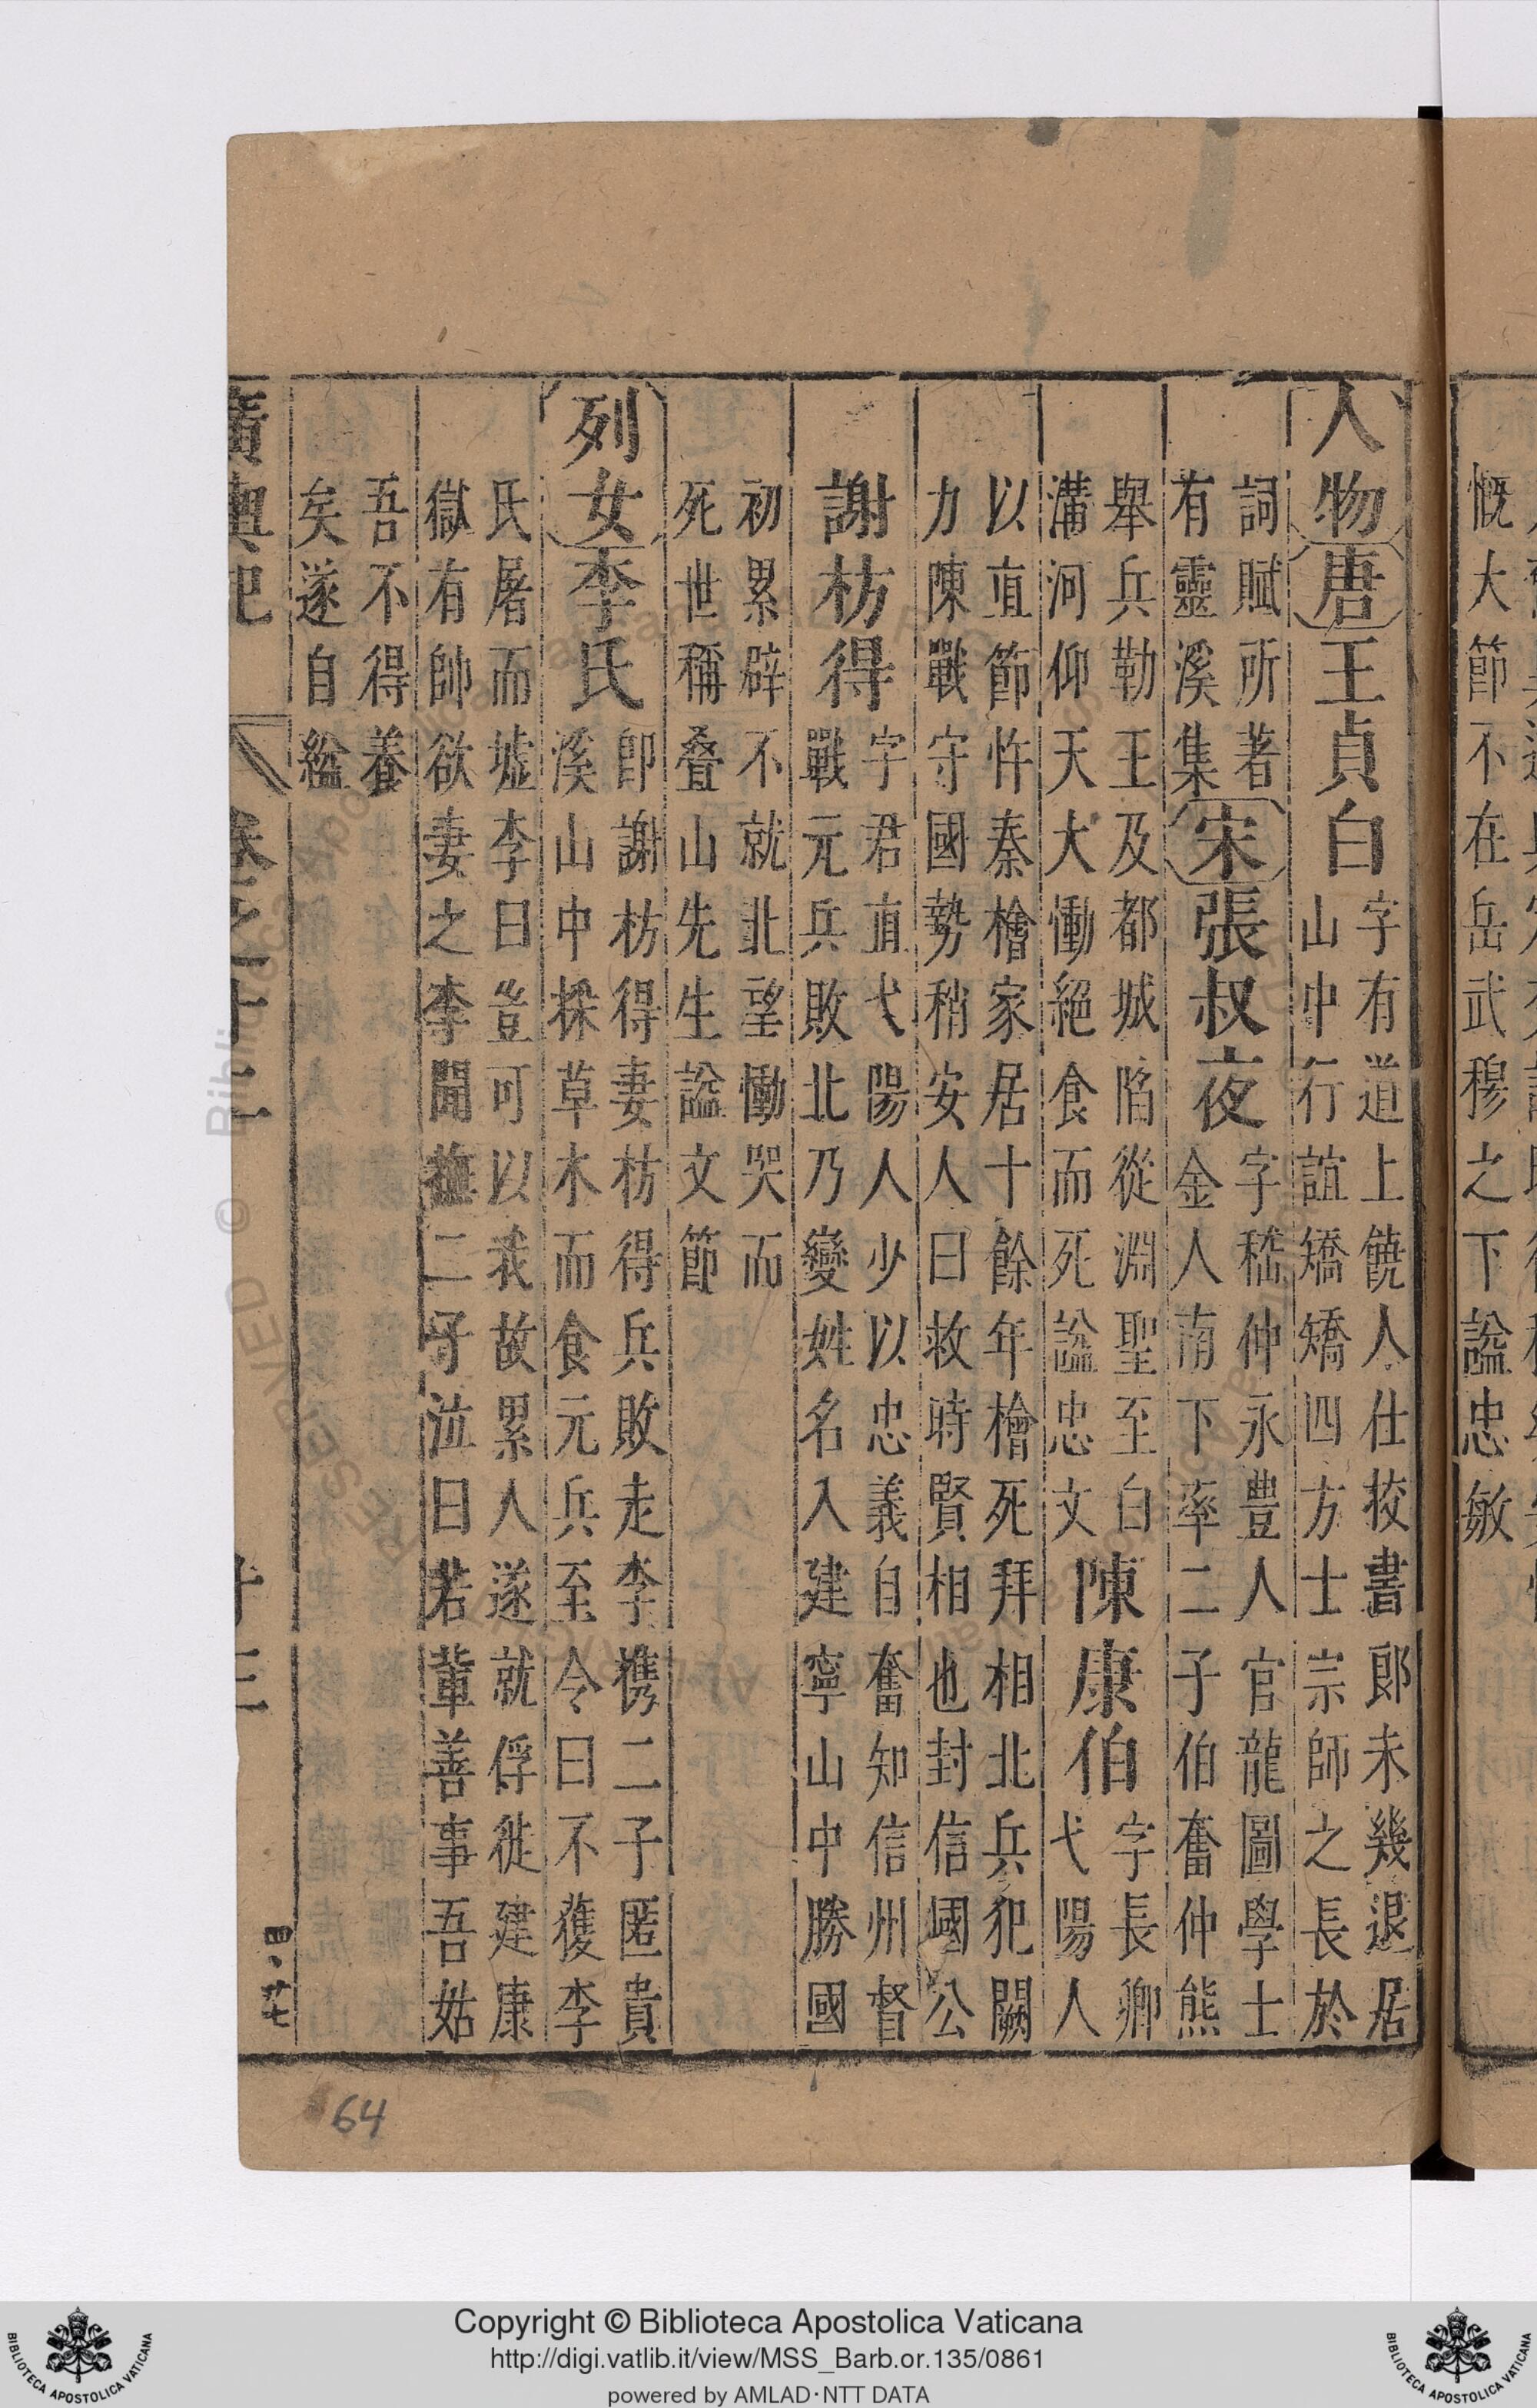 慨大節不在岳武穆之下謚忠敏
人物唐王貞白字有道上饒人仕挍書郎未幾退居
山中行誼矯矯四方士宗師之長於
詞賦所著
有靈溪集宋張叔夜字嵇仲永豐人官龍圖學士
金人南下率二子伯奮仲熊
舉兵勒王及都城陷從淵聖至白
溝河仰天大慟絕食而死謚忠文陳康伯字長卿
弋陽人
以直節忤秦檜家居十餘年檜死拜相北兵犯闕
力陳戰守國勢稍安人曰救時賢相也封信國公
謝枋得字君直弋陽人少以忠義自奮知信州督
戰元兵敗北乃變姓名入建寧山中勝國
初累辟不就北望慟哭而
死世稱叠山先生謚文節
列女李氏卽謝枋得妻枋得兵敗走李携二子匿貴
溪山中採草木而食元兵至令曰不獲李
氏屠而墟李曰豈可以我故累人遂就俘徙建康
獄有帥欲妻之李聞撫二子泣曰若輩善事吾姑
吾不得養
矣遂自縊
廣輿記
卷之十二
十三
64
Copyright © Biblioteca Apostolica Vaticana
http://digi.vatlib.it/view/MSS_Barb.or.135/0861
powered by AMLAD·NTT DATA
BIBLIOTECA APOSTOLICA VATICANA
BIBLIOTECA APOSTOLICA VATICANA